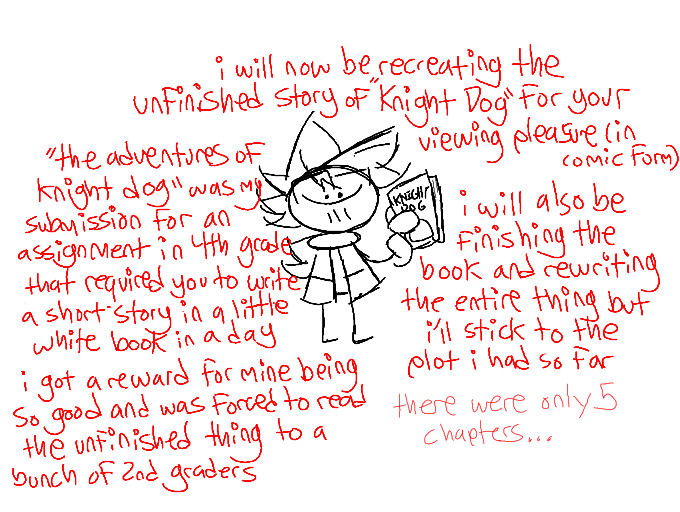 i will now be recreating the
unfinished story of "Knight Dog" for your
viewing pleasure (in
comic form)
"the adventures of
knight dog" was my
submission for an
assignment in 4th grade
that required you to write
a short story in a little
white book in a day
i got a reward for mine being
so good and was forced to read
the unfinished thing to a
bunch of 2nd graders
KNIGHT
DOG
i will also be
finishing the
book and rewriting
the entire thing but
i'll stick to the
plot i had so far
there were only 5
chapters...